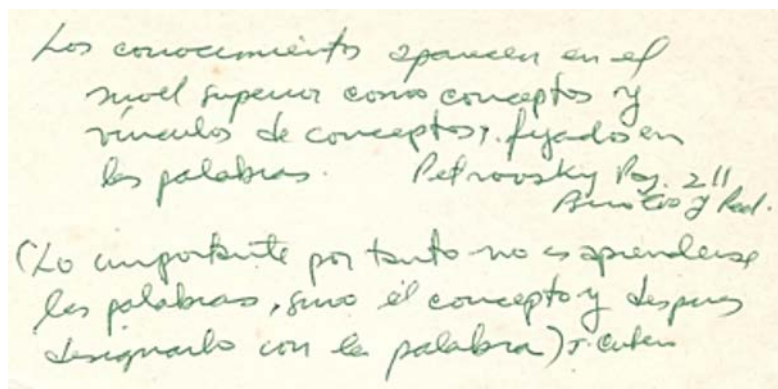 Los conocimientos aparecen en el
nivel superior como conceptos y
vínculos de conceptos, fijados en
las palabras. Petrovsky Pag. 211
y Ped.
(Lo importante por tanto no es aprenderse
las palabras, sino el concepto y despues
designarlo con la palabra) J.